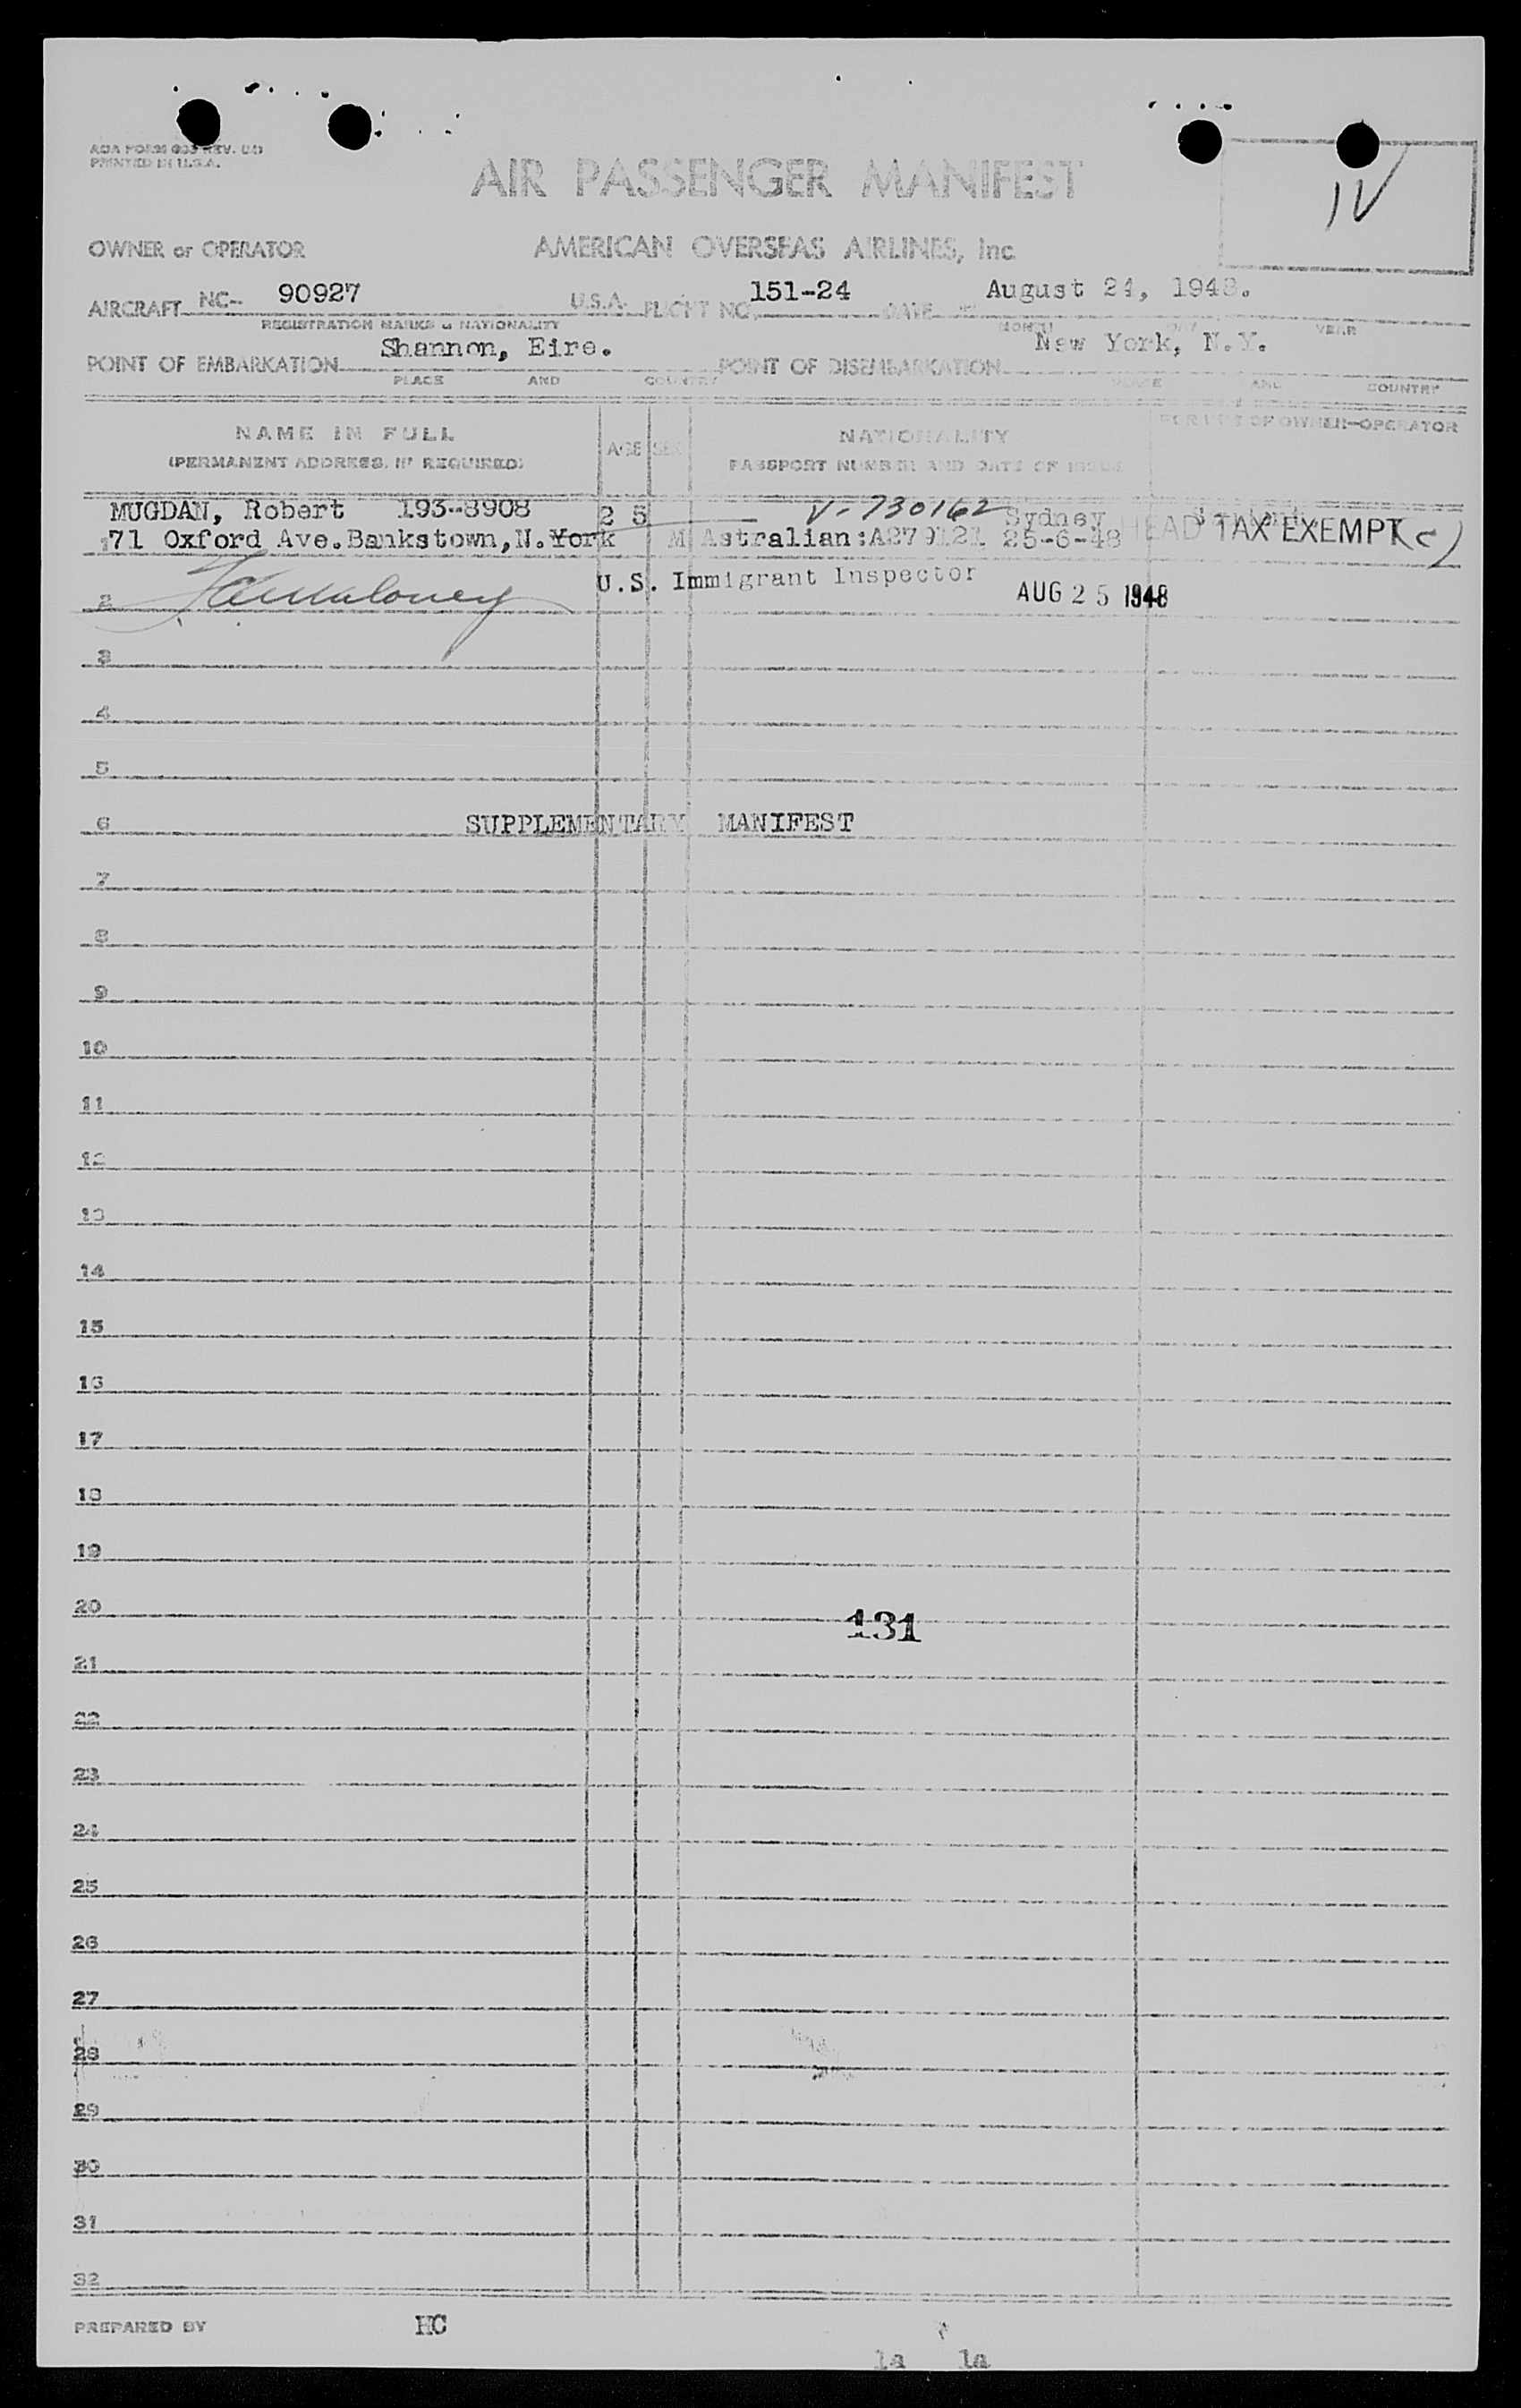 PRINTED IN U.S.A.
AIR PASSENGER MANIFEST
IV
OWNER or OPERATOR AMERICAN OVERSEAS AIRLINES, Inc
AIRCRAFT NC- 90927 U.S.A. FLIGHT NO. 151-24 DATE August 24, 1948.
REGISTRATION MARKS & NATIONALITY MONTH DAY YEAR
POINT OF EMBARKATION Shannon, Eire. POINT OF DISEMBARKATION New York, N.Y.
PLACE AND COUNTRY PLACE AND COUNTRY
NAME IN FULL AGE SEX NATIONALITY FOR USE OF OWNER-OPERATOR
(PERMANENT ADDRESS, IF REQUIRED) PASSPORT NUMBER AND DATE OF ISSUE
MUGDAN, Robert 193-8908 25 V-730162 Sydney
1 71 Oxford Ave.Bankstown,N.York M Astralian:A279121 25-6-48 HEAD TAX EXEMPT (c)
2 U.S. Immigrant Inspector AUG 25 1948
3
4
5
6 SUPPLEMENTARY MANIFEST
7
8
9
10
11
12
13
14
15
16
17
18
19
20 131
21
22
23
24
25
26
27
28
29
30
31
32
PREPARED BY HC
la la